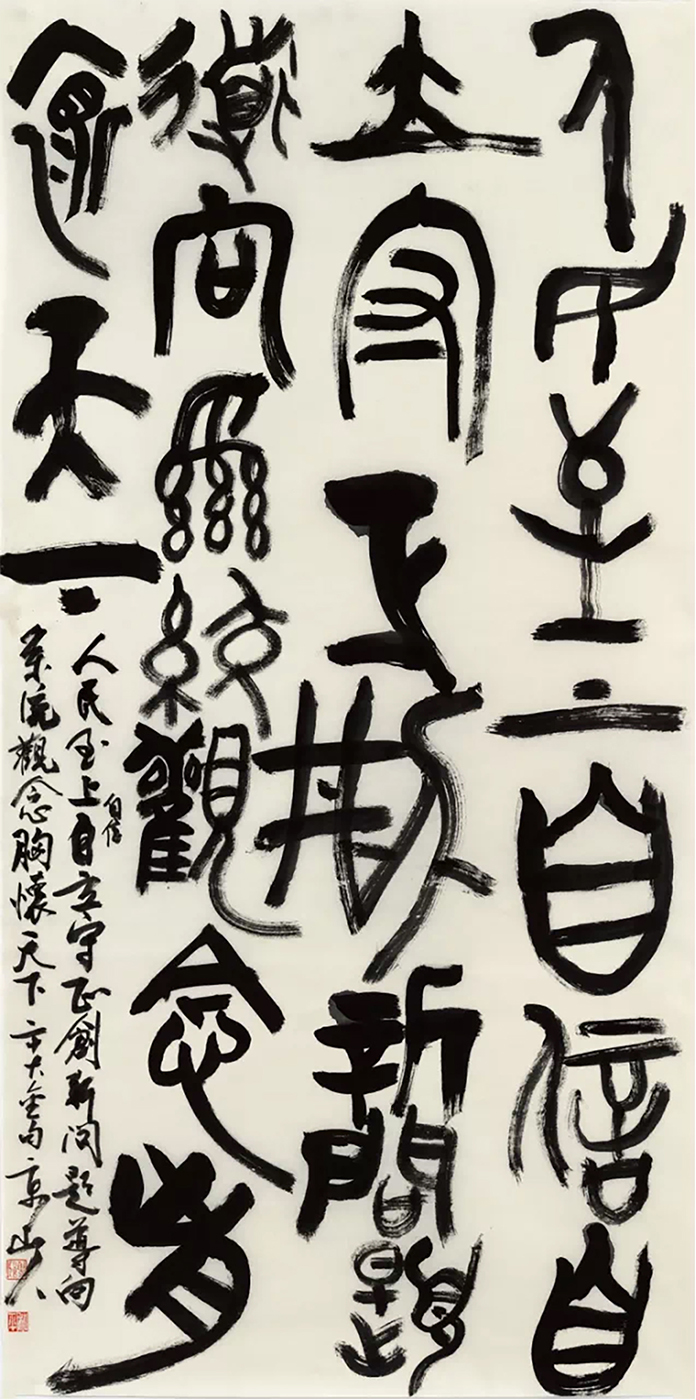 人民至上自信自
立守正創新問題
導向系統觀念胸
懷天下
人民至上自立守正創新問題導向
自信
系統觀念胸懷天下 二十大金句 京山人